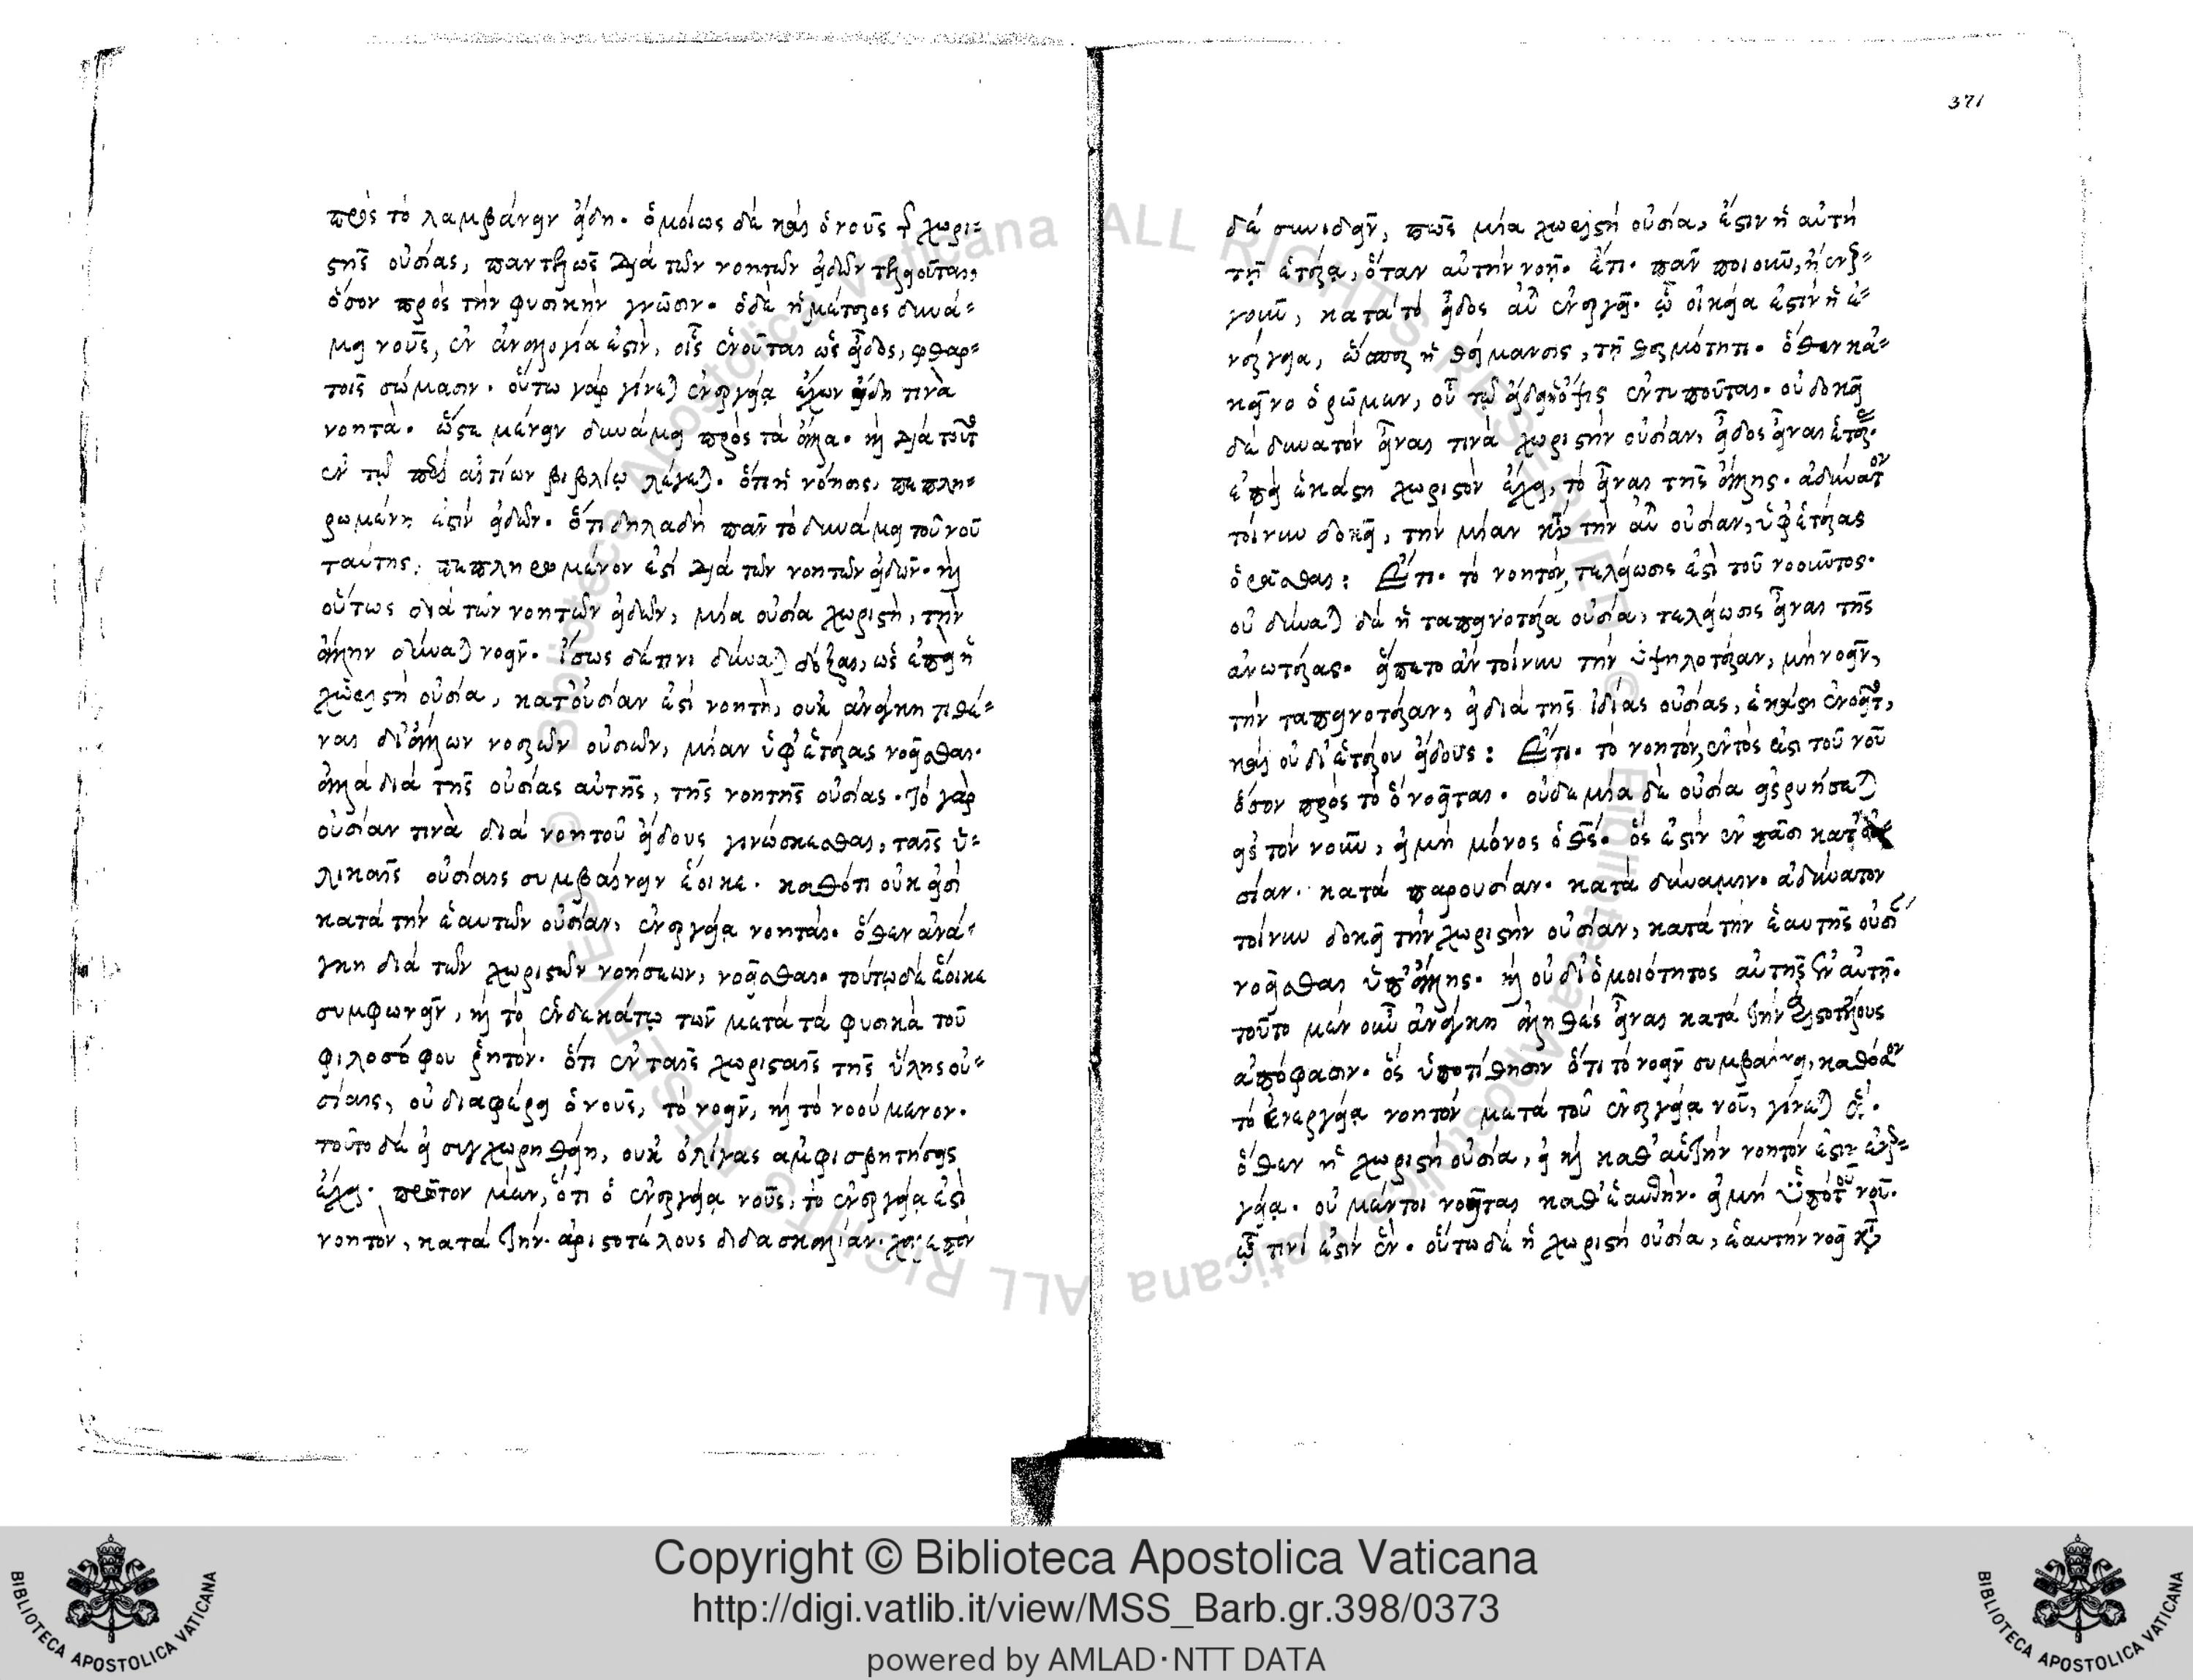 πρὸς τὸ λαμβάνειν εἴδη. ὁμοίως δὲ καὶ ὁ νοῦς τῆς χωρι=
στῆς οὐσίας, παντελῶς διὰ τῶν νοητῶν εἰδῶν τελειοῦται,
ὅσον πρὸς τὴν φυσικὴν γνῶσιν. ὁ δὲ ἡμέτερος δυνά=
μει νοῦς, ἐν ἀναλογία ἐστὶν, οἷς ἑνοῦται ὡς εἶδος, φθαρ=
τοῖς σώμασιν. οὕτω γὰρ γίνεται ἐνεργεία ἔχων εἴδη τινὰ
νοητὰ. ὥστε μένειν δυνάμει πρὸς τὰ ἄλλα. καὶ διὰ τοῦτο
ἐν τῷ περὶ αἰτίων βιβλίῳ λέγεται. ὅτι ἡ νόησις, πεπλη=
ρωμένη ἐστὶν εἰδῶν. ὅτι δηλαδὴ πᾶν τὸ δυνάμει τοῦ νοῦ
ταύτης, πεπληρωμένον ἐστὶ διὰ τῶν νοητῶν εἰδῶν. καὶ
οὕτως διὰ τῶν νοητῶν εἰδῶν, μία οὐσία χωριστὴ, τὴν
ἄλλην δύναται νοεῖν. ἴσως δέ τινι δύναται δόξαι, ὡς ἐπεὶ ἡ
χωριστὴ οὐσία, κατ' οὐσίαν ἐστὶ νοητὴ, οὐκ ἀνάγκη τιθέ=
ναι δι' ἄλλων νοερῶν οὐσιῶν, μίαν ὑφ' ἑτέρας νοεῖσθαι.
ἀλλὰ διὰ τῆς οὐσίας αὐτῆς, τῆς νοητῆς οὐσίας. τὸ γὰρ
οὐσίαν τινὰ διὰ νοητοῦ εἴδους γινώσκεσθαι, ταῖς ὑ=
λικαῖς οὐσίαις συμβαίνειν ἔοικε. καθότι οὐκ εἰσὶ
κατὰ τὴν ἑαυτῶν οὐσίαν, ἐνεργεία νοηταί. ὅθεν ἀνά=
γκη διὰ τῶν χωριστῶν νοήσεων, νοεῖσθαι. τούτῳ δὲ ἔοικε
συμφωνεῖν, καὶ τὸ ἑνδεκάτῳ τῶν μετὰ τὰ φυσικὰ τοῦ
φιλοσόφου ῥητὸν. ὅτι ἐν ταῖς χωρισταῖς τῆς ὕλης οὐ=
σίαις, οὐ διαφέρει ὁ νοῦς, τὸ νοεῖν, καὶ τὸ νοούμενον.
τοῦτο δὲ εἰ συγχωρηθείη, οὐκ ὀλίγας ἀμφισβητήσεις
ἔχει. πρῶτον μὲν, ὅτι ὁ ἐνεργεία νοῦς, τὸ ἐνεργεία ἐστὶ
νοητὸν, κατὰ τὴν ἀριστοτέλους διδασκαλίαν. χαλεπὸν
371
δὲ συνιδεῖν, πῶς μία χωριστὴ οὐσία, ἔστιν ἡ αὐτὴ
τῇ ἑτέρᾳ, ὅταν αὐτὴν νοῇ. ἔτι. πᾶν ποιοῦν, ἢ ἐνερ=
γοῦν, κατὰ τὸ εἶδος αὐτοῦ ἐνεργεῖ. ᾧ οἰκεία ἐστὶν ἡ ἐ=
νέργεια, ὥσπερ ἡ θέρμανσις, τῇ θερμότητι. ὅθεν κἀ=
κεῖνο ὁρῶμεν, οὗ τῷ εἴδει ἡ ὄψις ἐντυποῦται. οὐ δοκεῖ
δὲ δυνατὸν εἶναι τινὰ χωριστὴν οὐσίαν, εἶδος εἶναι ἑτέρας.
ἐπεὶ ἑκάστη χωριστὸν ἔχει, τὸ εἶναι τῆς ἄλλης. ἀδύνατον
τοίνυν δοκεῖ, τὴν μίαν κατὰ τὴν αὐτῆς οὐσίαν, ὑφ' ἑτέρας
ὁρᾶσθαι: Ἔτι. τὸ νοητὸν, τελείωσις ἐστὶ τοῦ νοοῦντος.
οὐ δύναται δὲ ἡ ταπεινοτέρα οὐσία, τελείωσις εἶναι τῆς
ἀνωτέρας. εἵπετο ἂν τοίνυν τὴν ὑψηλοτέραν, μὴ νοεῖν,
τὴν ταπεινοτέραν, εἰ διὰ τῆς ἰδίας οὐσίας, ἑκάστη ἐνοεῖτο,
καὶ οὐ δι' ἑτέρου εἴδους: Ἔτι. τὸ νοητὸν, ἐντὸς ἐστὶ τοῦ νοῦ
ὅσον πρὸς τὸ ὃ νοεῖται. οὐδεμία δὲ οὐσία εἰσδυήσεται
εἰς τὸν νοῦν, εἰ μὴ μόνος ὁ θεός. ὅς ἐστιν ἐν πᾶσι κατ' οὐ=
σίαν. κατὰ παρουσίαν. κατὰ δύναμιν. ἀδύνατον
τοίνυν δοκεῖ τὴν χωριστὴν οὐσίαν, κατὰ τὴν ἑαυτῆς οὐσίαν
νοεῖσθαι ὑπ' ἄλλης. καὶ οὐ δι' ὁμοιότητος αὐτῆς ἐν αὐτῇ.
τοῦτο μὲν οὖν ἀνάγκη ἀληθὲς εἶναι κατὰ τὴν ἀριστοτέλους
ἀπόφασιν. ὃς ὑποτίθησιν ὅτι τὸ νοεῖν συμβαίνει, καθόσον
τὸ ἐνεργείᾳ νοητὸν μετὰ τοῦ ἐνεργείᾳ νοῦ, γίνεται ἕν.
ὅθεν ἡ χωριστὴ οὐσία, εἰ καὶ καθ' αὑτὴν νοητόν ἐστιν ἐνερ=
γείᾳ. οὐ μέντοι νοεῖται καθ' ἑαυτὴν. εἰ μὴ ὑπὸ τοῦ νοῦ.
ᾧ τινί ἐστιν ἕν. οὕτω δὲ ἡ χωριστὴ οὐσία, ἑαυτὴν νοεῖ κατὰ
Copyright © Biblioteca Apostolica Vaticana
http://digi.vatlib.it/view/MSS_Barb.gr.398/0373
powered by AMLAD·NTT DATA
BIBLIOTECA APOSTOLICA VATICANA
BIBLIOTECA APOSTOLICA VATICANA